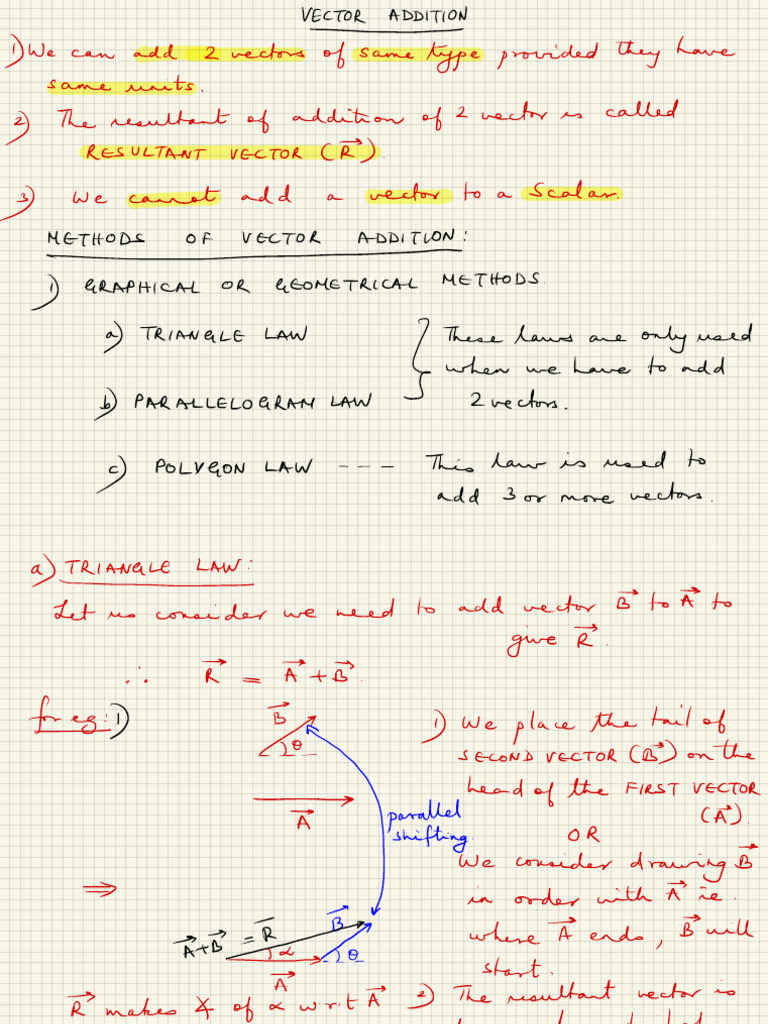 VECTOR ADDITION
1) We can add 2 vectors of same type provided they have
same units.
2) The resultant of addition of 2 vector is called
RESULTANT VECTOR (R⃗).
3) We cannot add a vector to a Scalar.
METHODS OF VECTOR ADDITION:
1) GRAPHICAL OR GEOMETRICAL METHODS.
a) TRIANGLE LAW
b) PARALLELOGRAM LAW
These laws are only used
when we have to add
2 vectors.
c) POLYGON LAW --- This law is used to
add 3 or more vectors.
a) TRIANGLE LAW:
Let us consider we need to add vector B⃗ to A⃗ to
give R⃗.
∴ R⃗ = A⃗ + B⃗.
for eg: 1)
B⃗
θ
A⃗
parallel
shifting
⇒
A⃗+B⃗ = R⃗
B⃗
α
θ
A⃗
R⃗ makes ∡ of α w.r.t A⃗
1) We place the tail of
SECOND VECTOR (B⃗) on the
head of the FIRST VECTOR
(A⃗).
OR
We consider drawing B⃗
in order with A⃗ ie.
where A⃗ ends, B⃗ will
start.
2) The resultant vector is